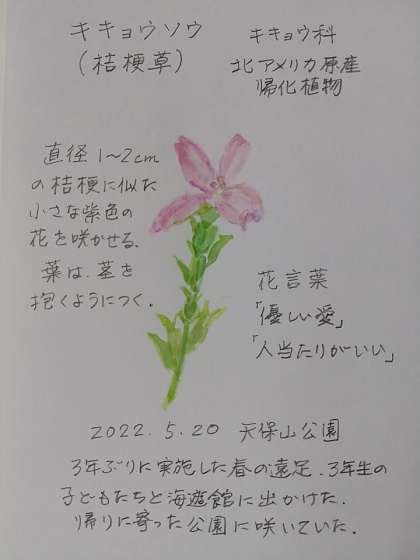 キキョウソウ
(桔梗草)
キキョウ科
北アメリカ原産
帰化植物
直径1〜2cm
の桔梗に似た
小さな紫色の
花を咲かせる、
葉は、茎を
抱くようにつく.
花言葉
「優しい愛」
「人当たりがいい」
2022.5.20 天保山公園
3年ぶりに実施した春の遠足.3年生の
子どもたちと海遊館に出かけた.
帰りに寄った公園に咲いていた.